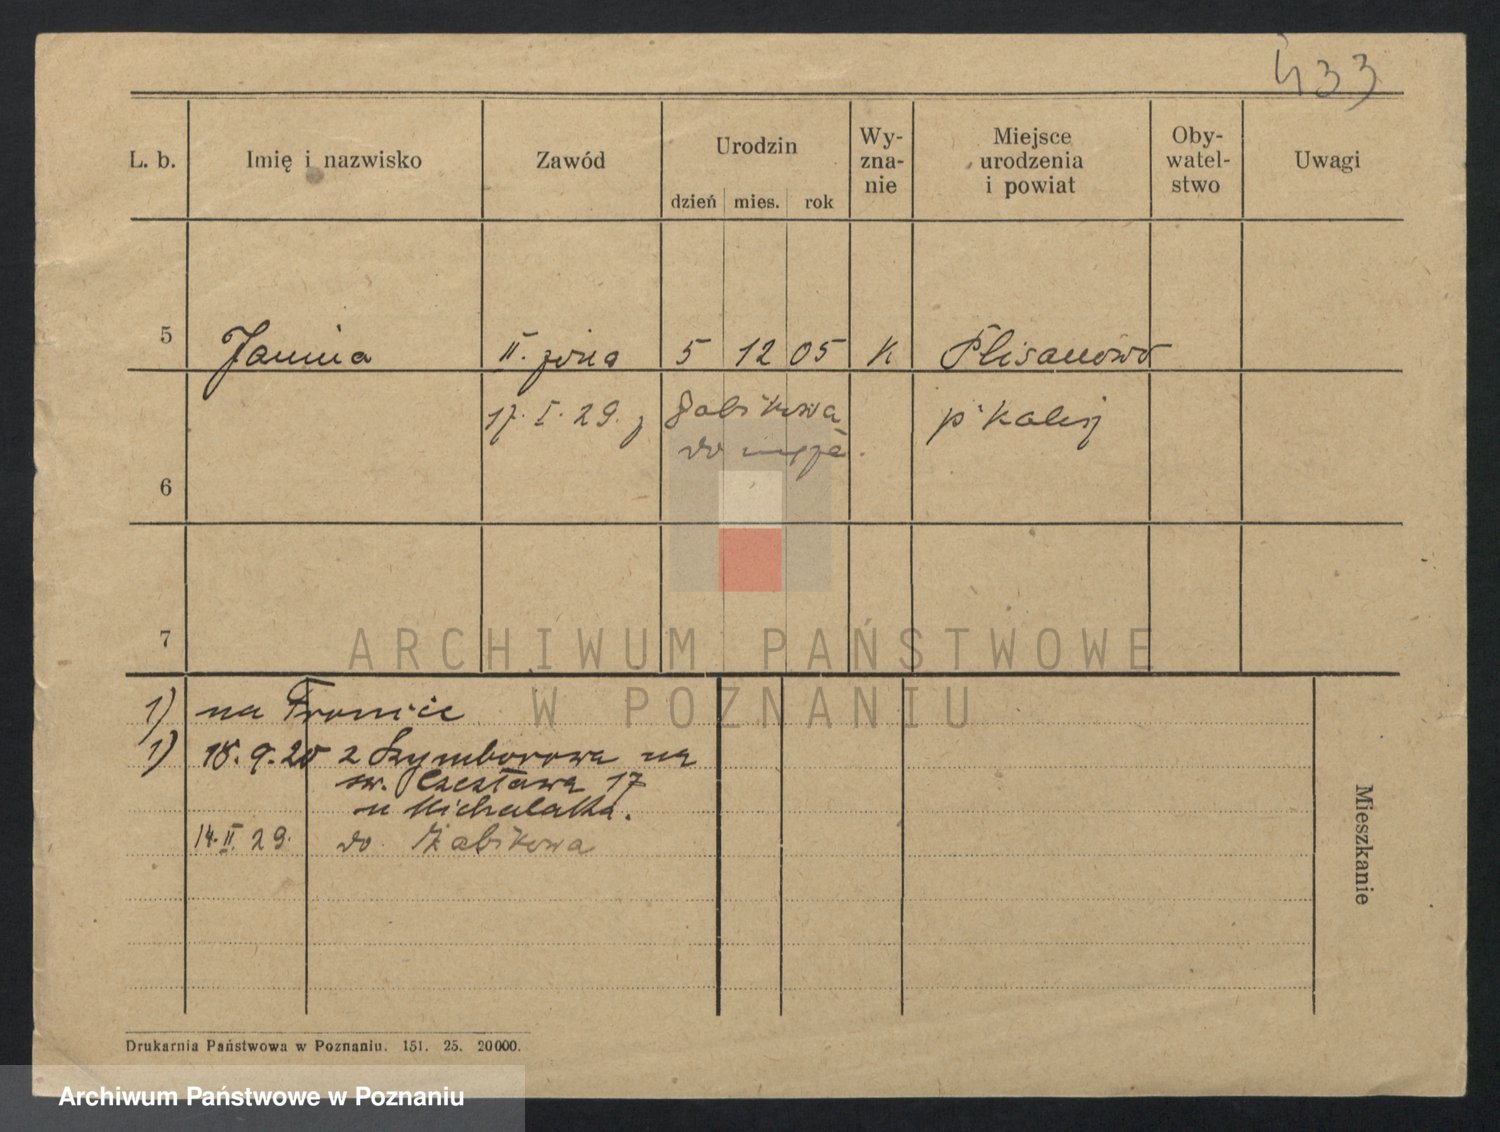 433
L. b. Imię i nazwisko Zawód Urodzin dzień mies. rok Wy-zna-nie Miejsce urodzenia i powiat Oby-watel-stwo Uwagi
5 Janina II. żona 5 12 05 K Plisanówo
17. I. 29. z Żabikowa p. Kalisz
do męża.
6
7
ARCHIWUM PAŃSTWOWE
W POZNANIU
1) na Fromice
1) 18.9.28 z Szymborowa na
św. Czesława 17
u Michalaka.
14. II. 29. do Żabikowa
Mieszkanie
Drukarnia Państwowa w Poznaniu. 151. 25. 20000.
Archiwum Państwowe w Poznaniu